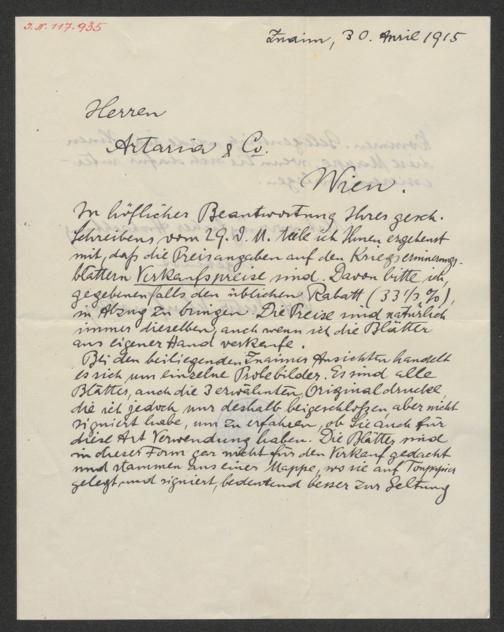 J.N. 117.935
Znaim, 30. April 1915
Herren
Artaria & Co.
Wien.
In höflicher Beantwortung Ihres gesch.
Schreibens vom 29. d. M. teile ich Ihnen ergebenst
mit, daß die Preisangaben auf den Kriegserinnerungs-
blättern Verkaufspreise sind. Davon bitte ich,
gegebenenfalls den üblichen Rabatt (33⅓%),
in Abzug zu bringen. Die Preise sind natürlich
immer dieselben, auch wenn ich die Blätter
aus eigener Hand verkaufe.
Bei den beiliegenden Znaimer Ansichten handelt
es sich um einzelne Probebilder. Es sind alle
Blätter, auch die 3 erwähnten Originaldrucke,
die ich jedoch nur deshalb beigeschloßen, aber nicht
signiert habe, um zu erfahren, ob Sie auch für
diese Art Verwendung haben. Die Blätter sind
in dieser Form gar nicht für den Verkauf gedacht
und stammen aus einer Mappe, wo sie auf Tonpapier
gelegt, und signiert, bedeutend besser zur Geltung